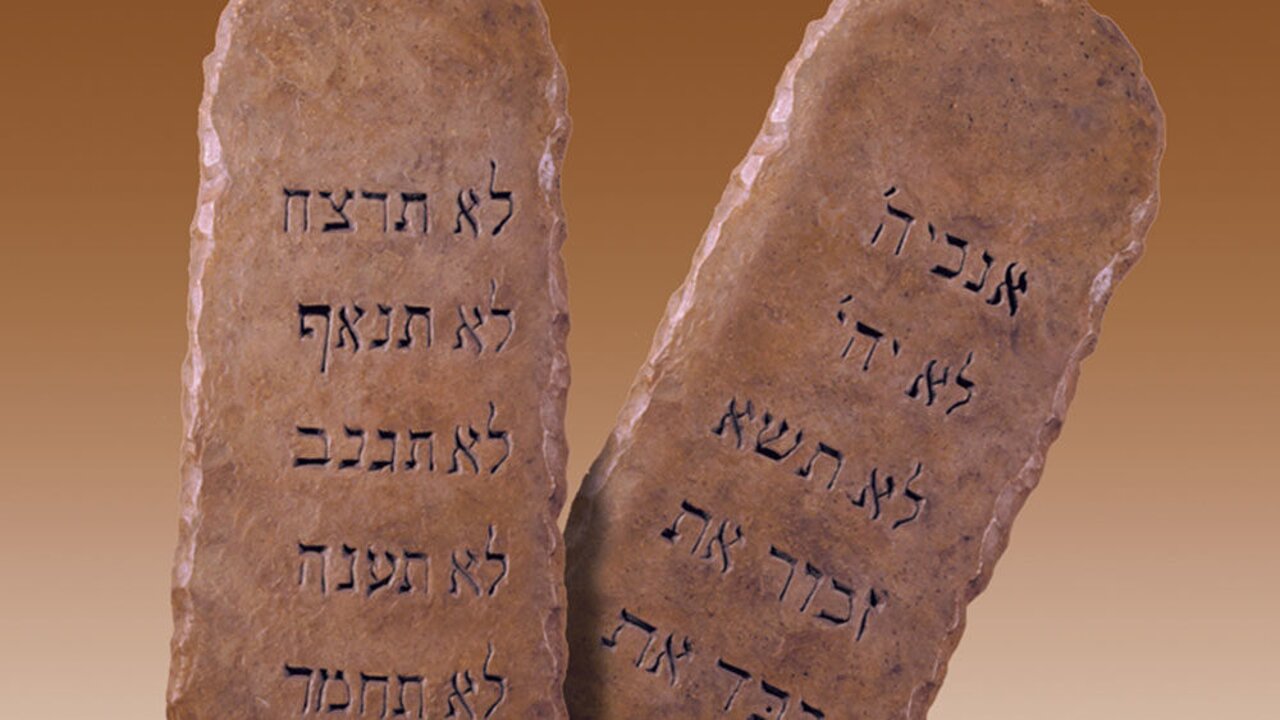 אנכי ה'
לא יה'
לא תשא
זכור את
כבד את
לא תרצח
לא תנאף
לא תגנב
לא תענה
לא תחמד